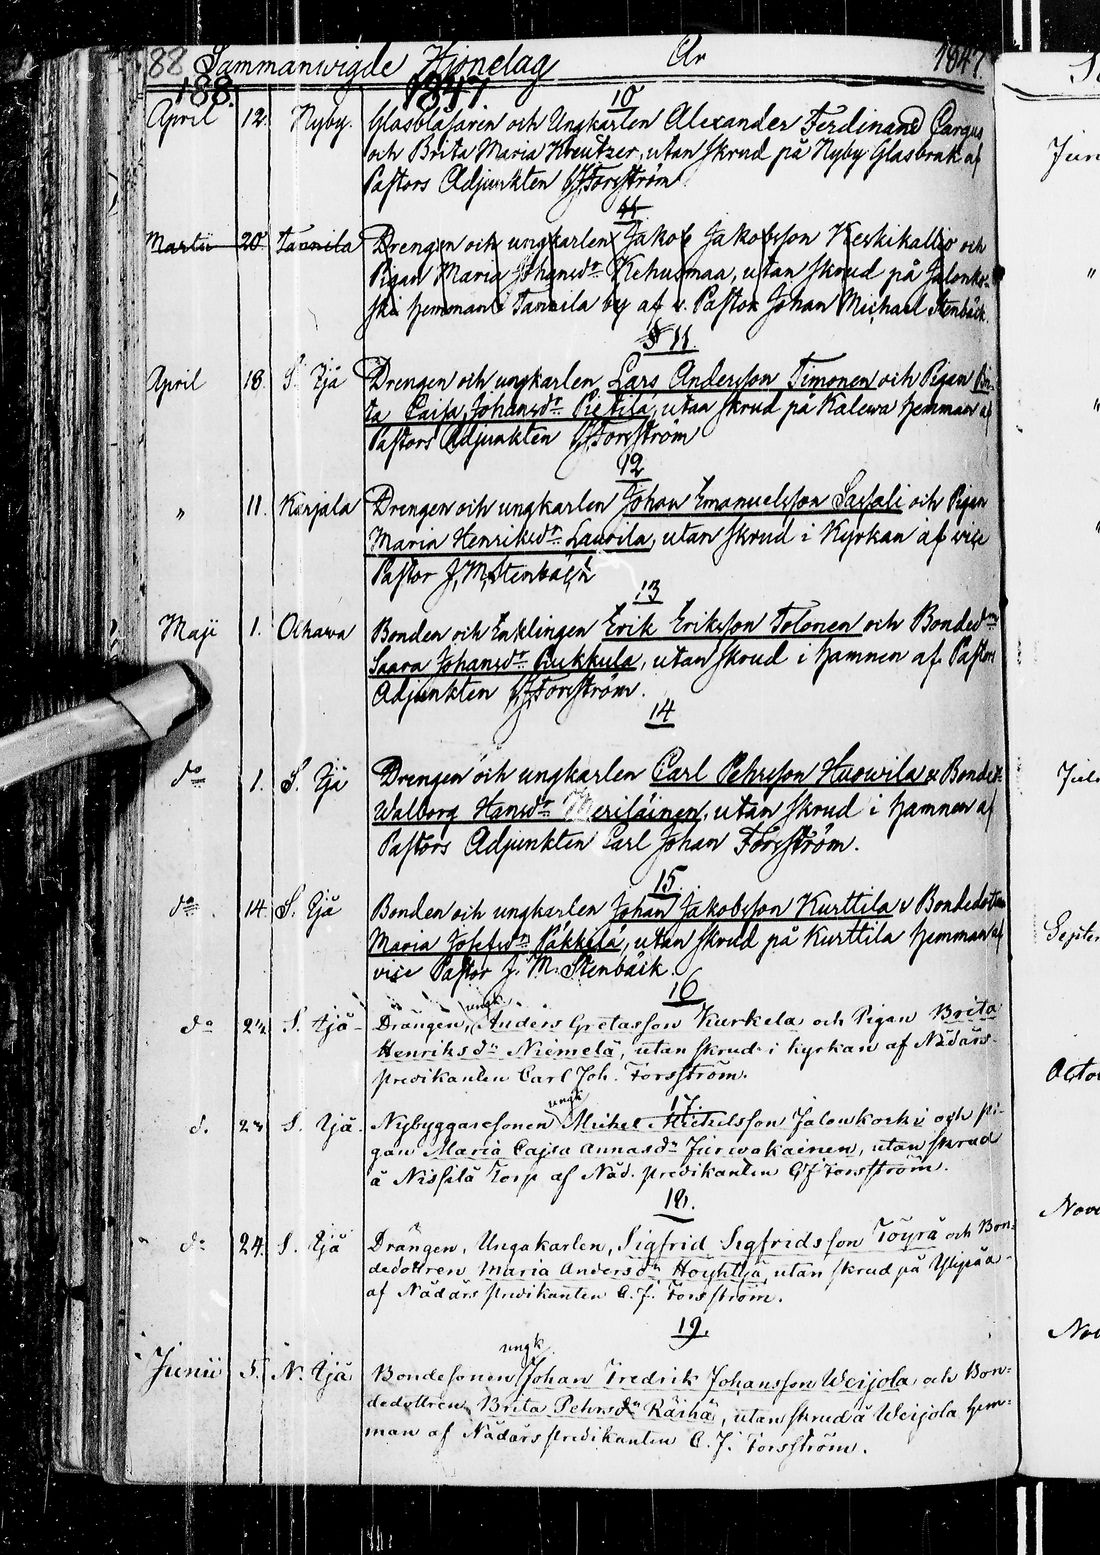 88 Sammanwigde Hjonelag År 1847
188. 1847
10
April 12. Nyby. Glasblåsaren och Ungkarlen Alexander Ferdinand Cargus
och Brita Maria Kreutzer, utan skrud på Nyby Glasbruk af
Pastors Adjunkten CJForsström.
11
Martii 20 Tannila Drengen och ungkarlen Jakob Jakobsson Keskikallio och
Pigan Maria Johansdr Kehusmaa, utan skrud på Jalonko-
ski hemman i Tannila by af v. Pastor Johan Michael Stenbäck.
11.
April 18. S. Ijå Drengen och ungkarlen Lars Andersson Timonen och Pigan Bri-
ta Caisa Johansdr Pietilä, utan skrud på Kalewa hemman af
Pastors Adjunkten CJForsström
12
" 11. Karjala Drengen och ungkarlen Johan Emanuelsson Sassali och Pigan
Maria Henriksdr Laurila, utan skrud i Kyrkan af vice
Pastor J. M. Stenbäck
13
Maji 1. Olhawa Bonden och Enklingen Erik Eriksson Tolonen och Bondedrn
Saara Johansdr Rukkula, utan skrud i hamnen af Pastors
Adjunkten CJForsström.
14
do 1. S. Ijå Drengen och ungkarlen Carl Pehrsson Huowila o Bondedr
Walborg Hansdr Meriläinen, utan skrud i hamnen af
Pastors Adjunkten Carl Johan Forsström.
15.
do 14. S. Ijå Bonden och ungkarlen Johan Jakobsson Kurttila o Bondedottren
Maria Josefsdr Päkkelä, utan skrud på Kurttila hemman af
vice Pastor J. M. Stenbäck.
16
ungk.
do S. Ijå Drängen, Anders Gretasson Kurkela och Pigan Brita
Henriksdr Niemelä, utan skrud i kyrkan af Nådårs-
predikanten Carl Joh. Forsström.
17.
ungk
d. S. Ijå. Nybyggaresonen Mickel Mickelsson Jalonkoski och pi-
gan Maria Cajsa Annasdr Jurwakainen, utan skrud
å Nissilä Torp af Nåd. predikanten CJForsström.
18.
do 24. S. Ijå Drängen, Ungakarlen, Sigfrid Sigfridsson Töyrä och Bon-
dedottren Maria Andersdr Höyhtyä, utan skrud på Ylipää
af Nådårs predikanten C. J. Forsström.
19.
ungk
Junii 5. N. Ijå Bondesonen Johan Fredrik Johansson Weijola och Bon-
dedottren Brita Pehrsdr Räihä, utan skrud å Weijola hem-
man af Nådårspredikanten C. J. Forsström.